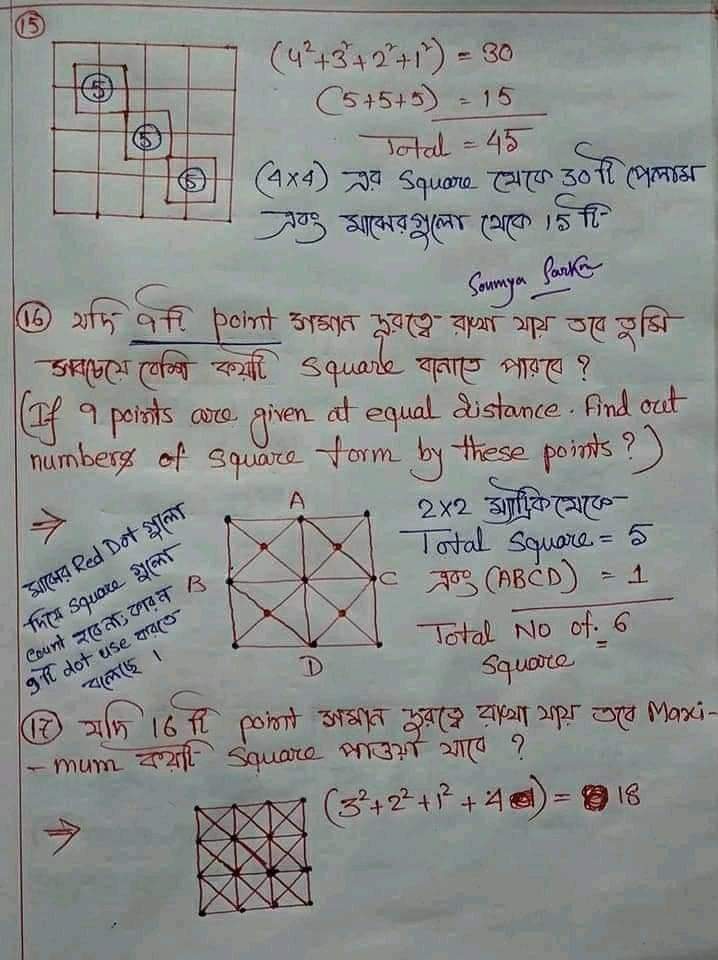 15
5
5
5
(4²+3²+2²+1²) = 30
(5+5+5) = 15
Total = 45
(4×4) এর Square থেকে 30টি পেলাম
এবং মাঝেরগুলো থেকে 15টি
Soumya Sarkar
16 যদি 9টি point সমান দূরত্বে রাখা যায় তবে তুমি
সবচেয়ে বেশি কয়টি Square বানাতে পারবে ?
(If 9 points are given at equal distance. Find out
numbers of square form by these points?)
⇒
মাঝের Red Dot গুলো
দিয়ে square গুলো
count হবে না, কারন
9টি dot use করতে
বলেছে ।
A
B
C
D
2×2 ম্যাট্রিক্স থেকে
Total Square = 5
এবং (ABCD) = 1
Total No of. 6
Square
17 যদি 16 টি point সমান দূরত্বে রাখা যায় তবে Maxi-
-mum কয়টি Square পাওয়া যাবে ?
⇒
(3²+2²+1²+4) = 18